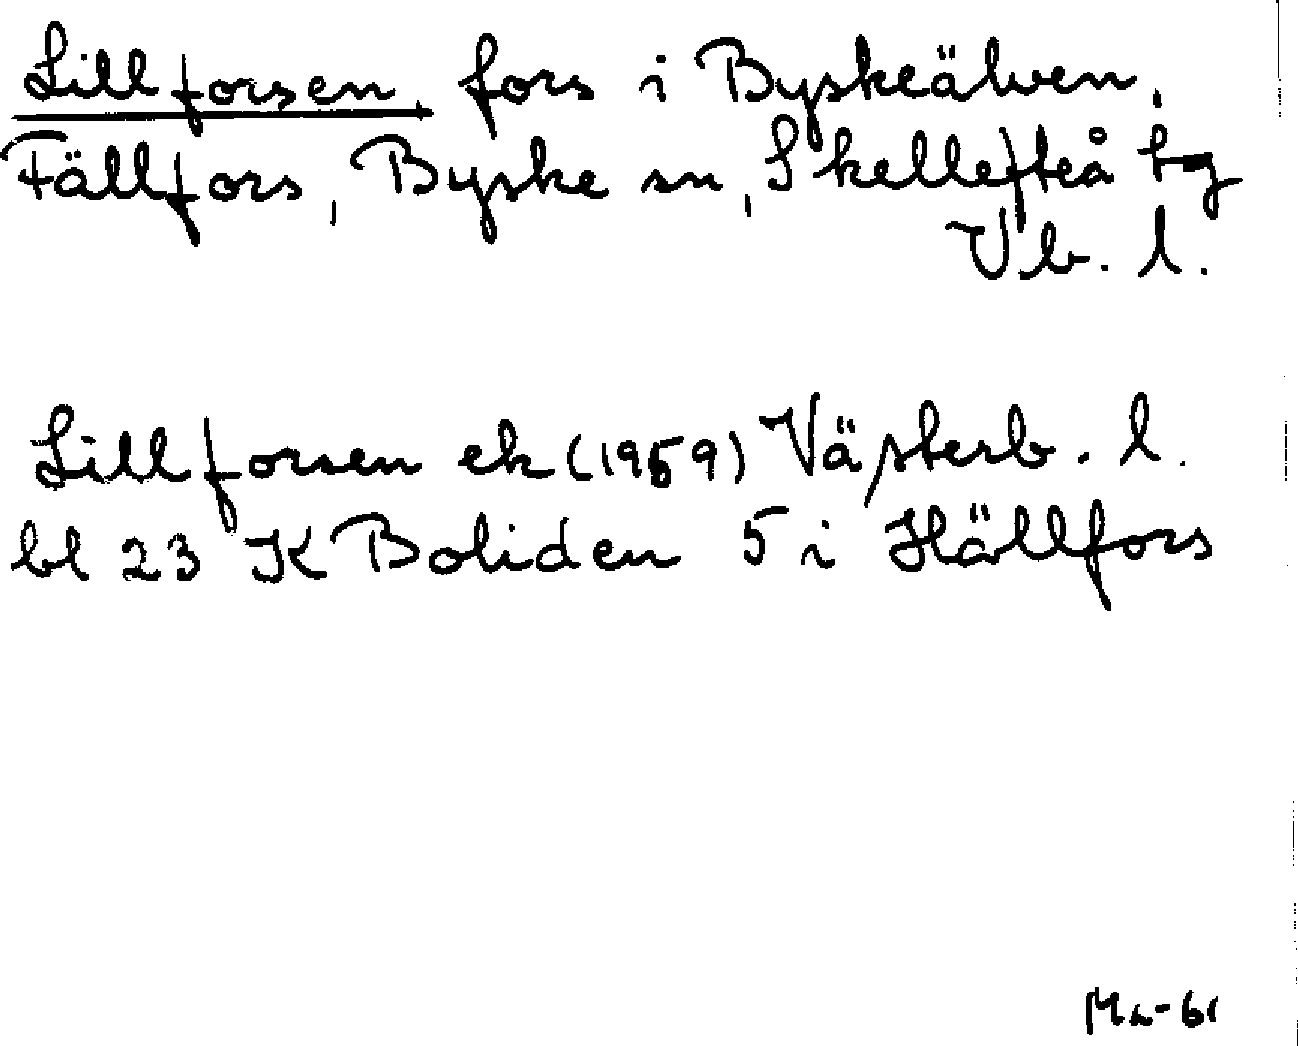 Lillforsen, fors i Byskeälven,
Fällfors, Byske sn, Skellefteå tg
Vb. l.
Lillforsen ek (1959) Västerb. l.
bl 23 K Boliden 5 i Hällfors